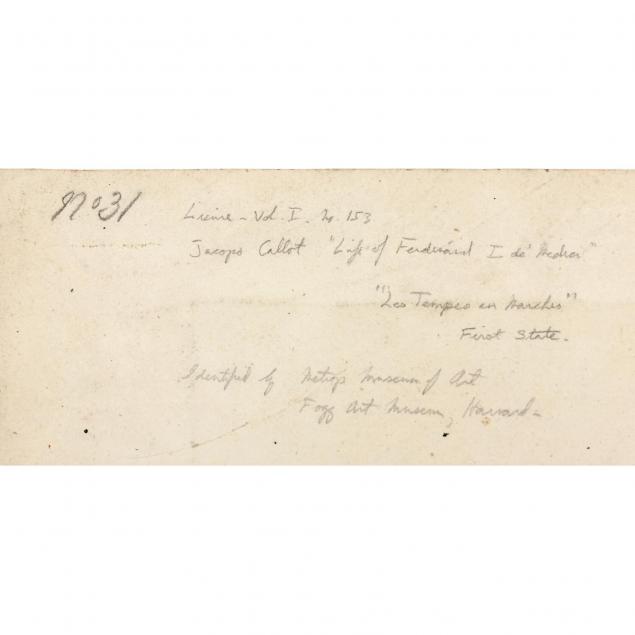 No 31
Lieure - Vol. I. No. 153
Jacopo Callot "Life of Ferdinand I de' Medici"
"Les Troupes en Marche"
First State.
Identified by Metrop Museum of Art
Fogg Art Museum, Harvard -